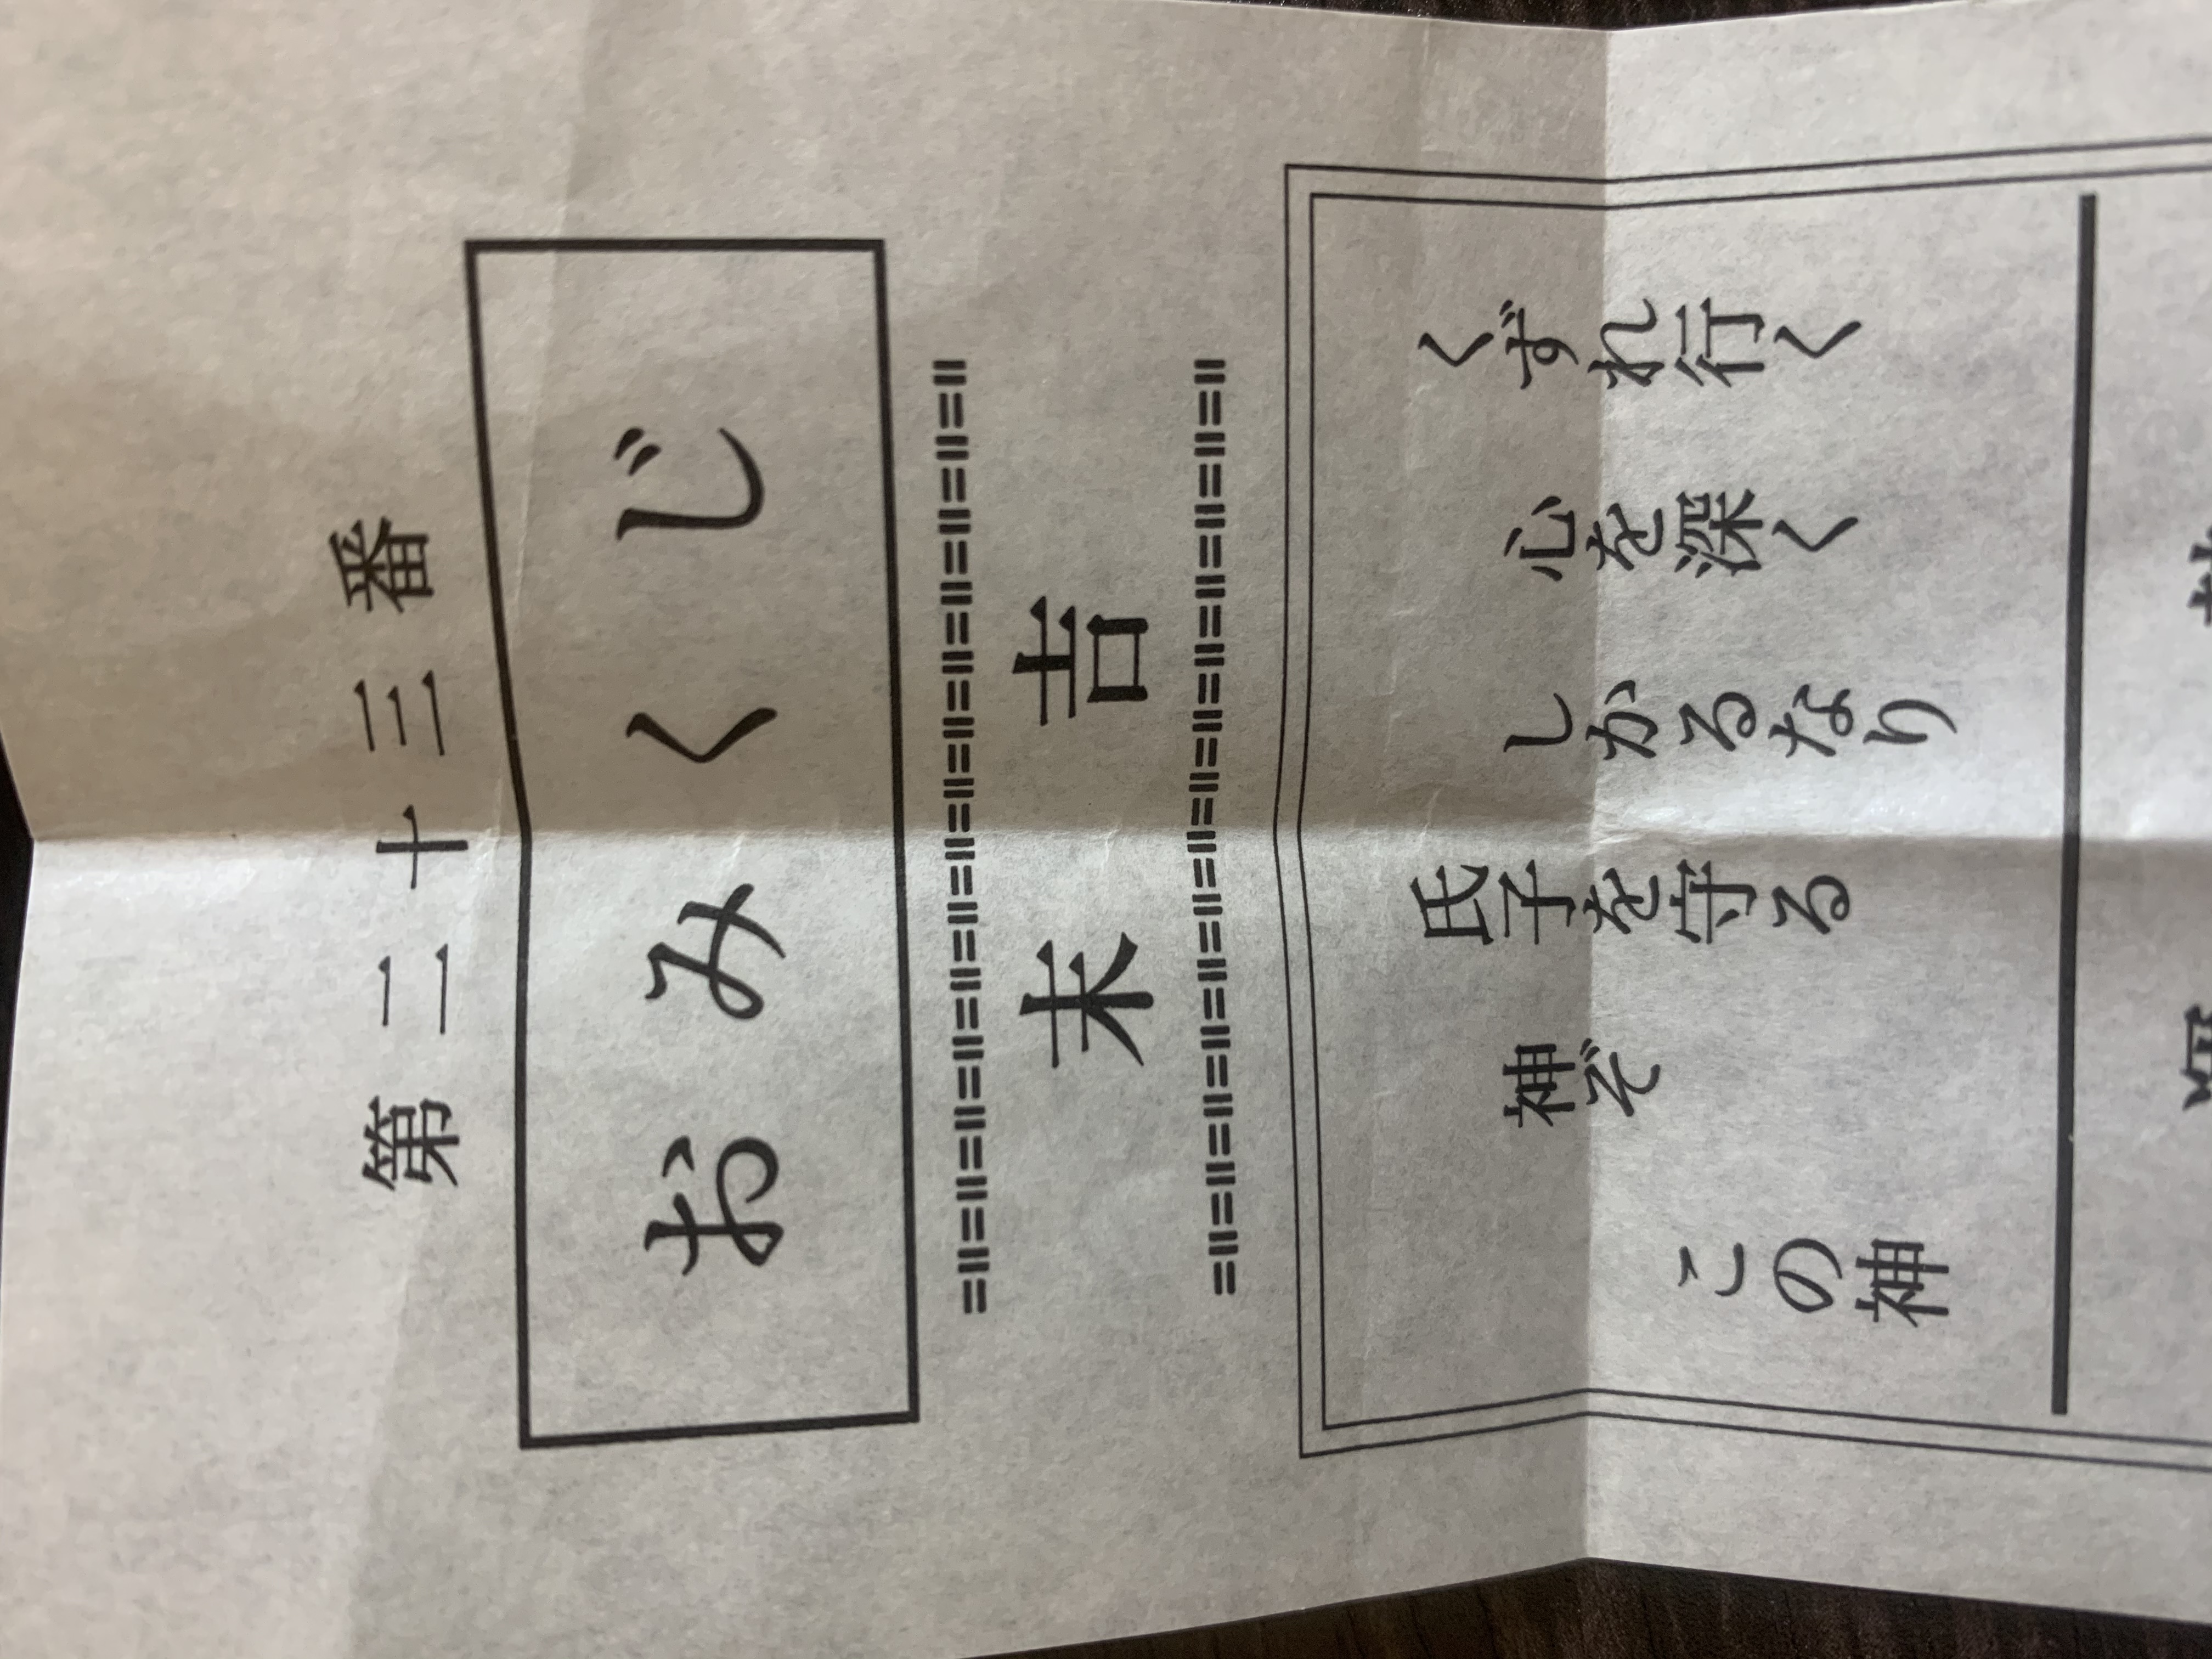 第二十三番
おみくじ
末吉
くずれ行く
心を深く
しかるなり
氏子を守る
神ぞ
この神